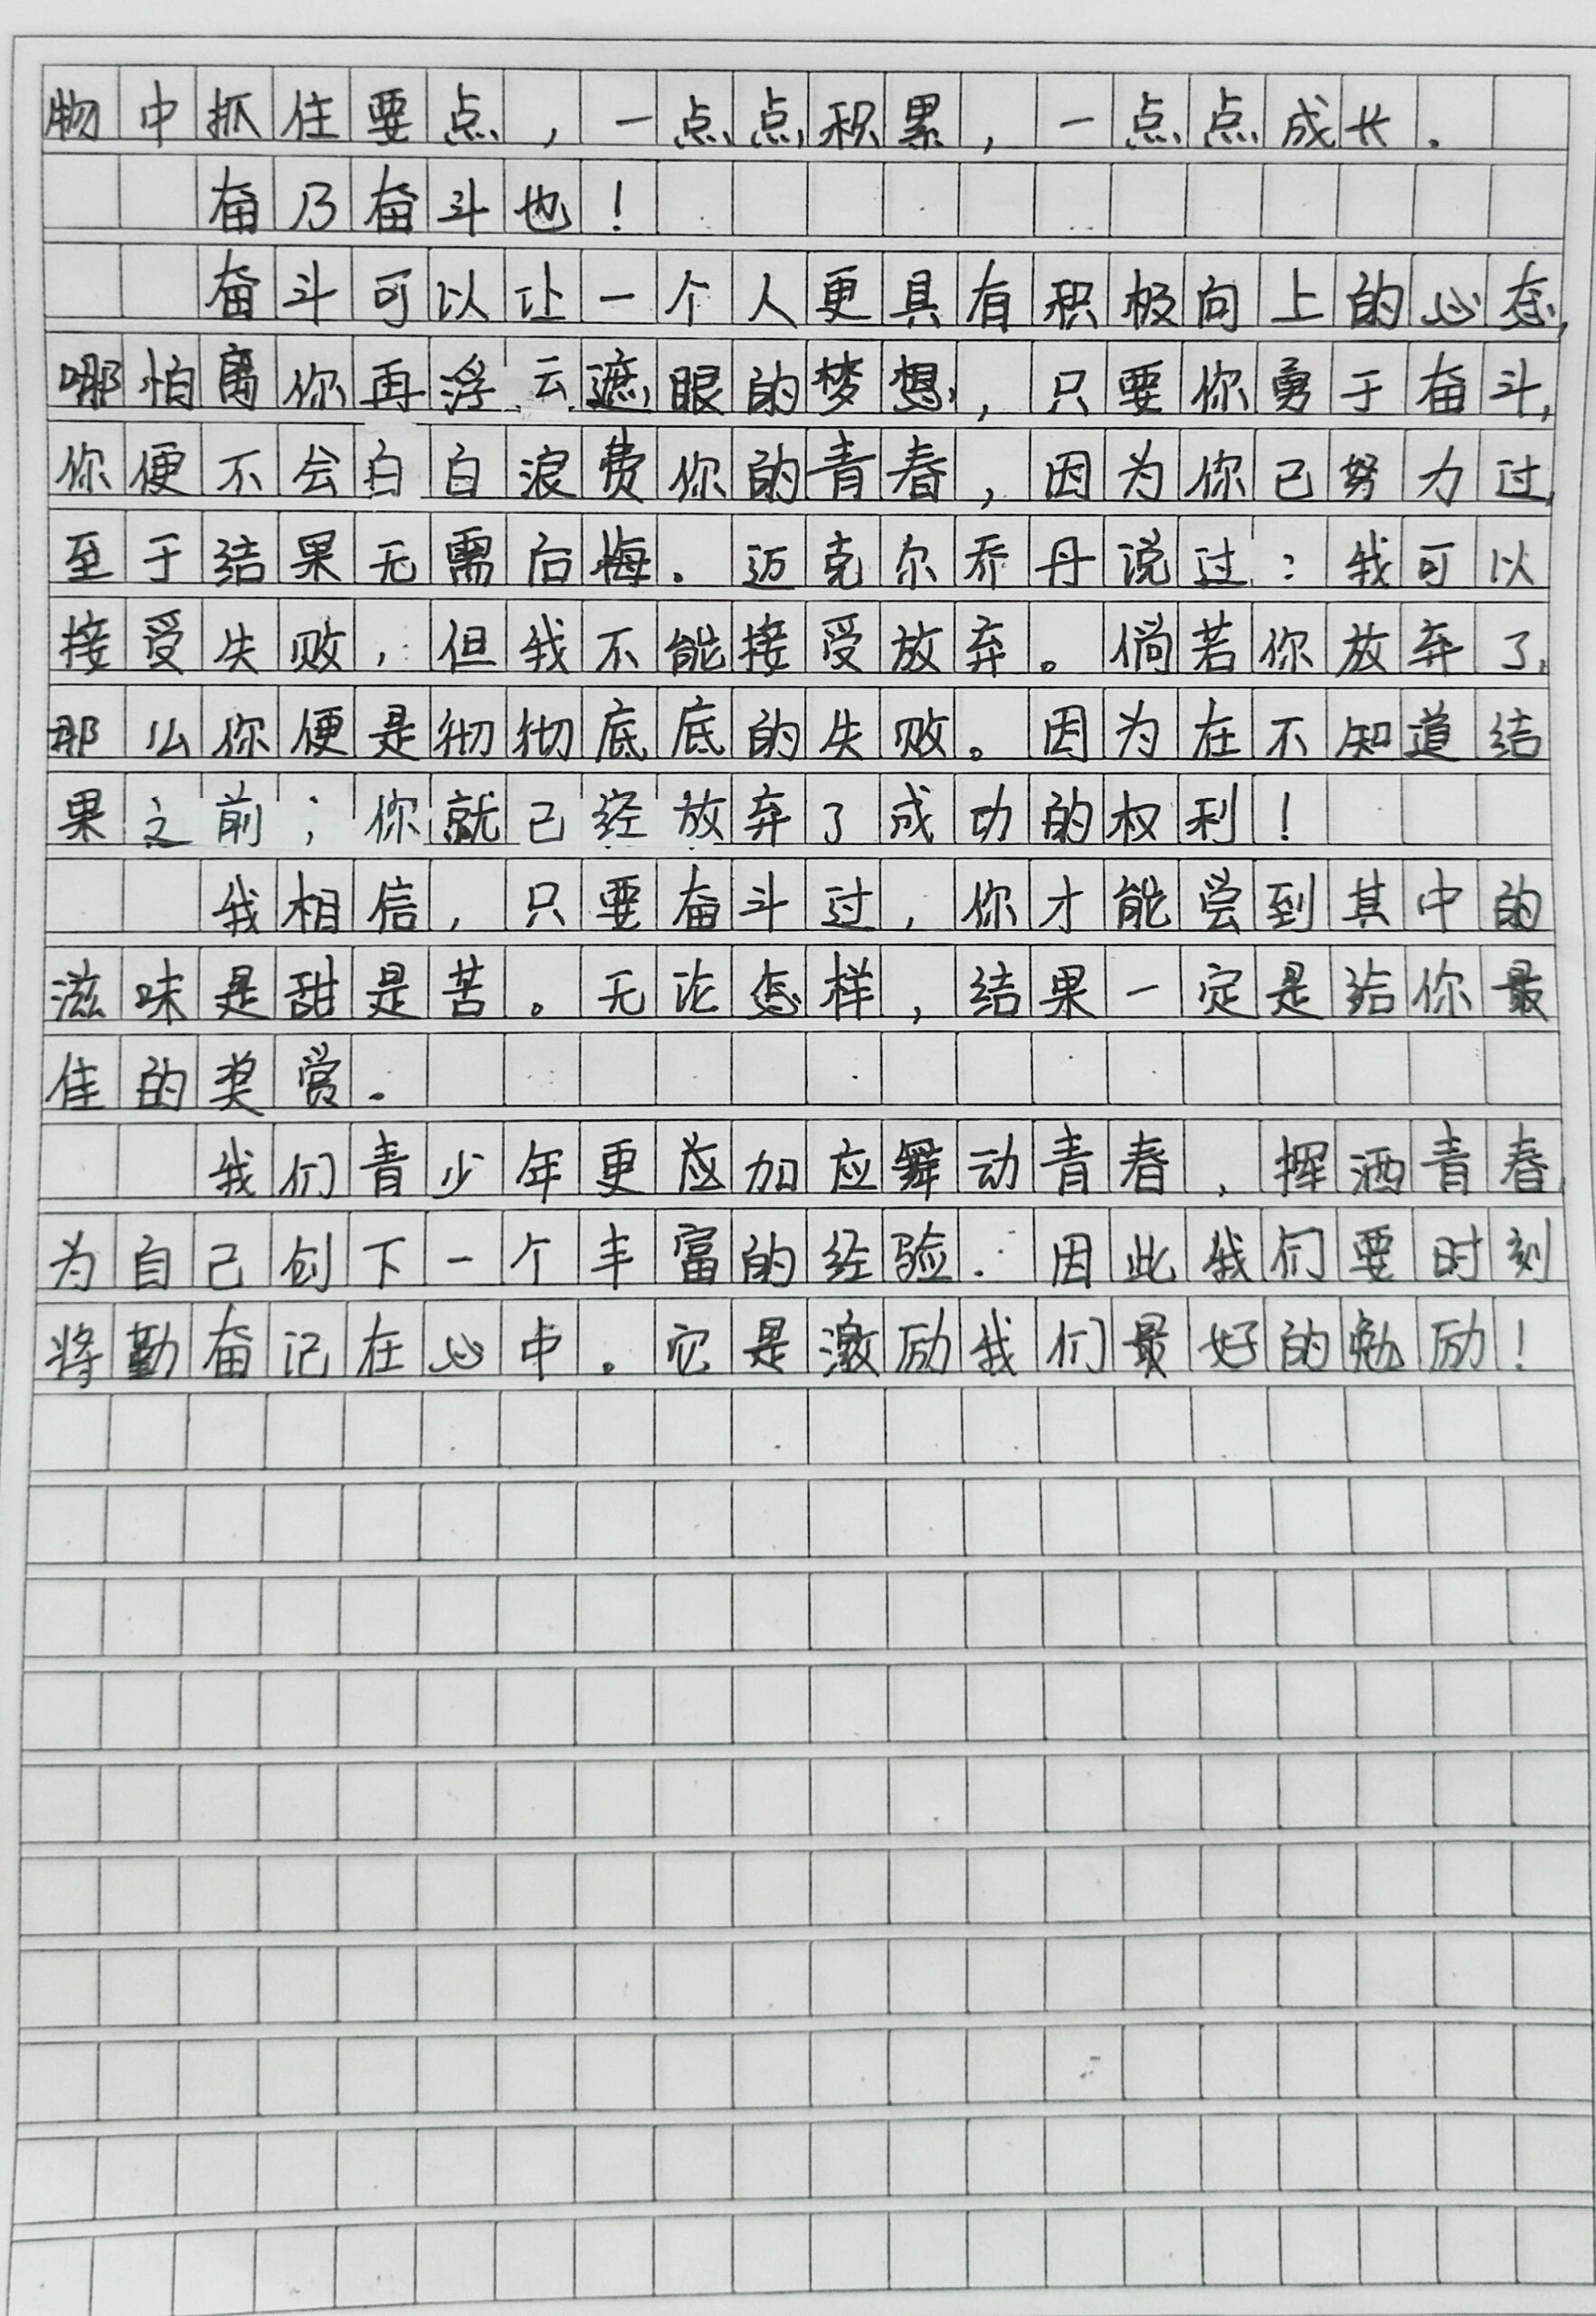 物中抓住要点，一点点积累，一点点成长．
奋乃奋斗也！
奋斗可以让一个人更具有积极向上的心态，
哪怕离你再浮云遮眼的梦想，只要你勇于奋斗，
你便不会白白浪费你的青春，因为你已努力过，
至于结果无需后悔．迈克尔乔丹说过：我可以
接受失败，但我不能接受放弃。倘若你放弃了，
那么你便是彻彻底底的失败。因为在不知道结
果之前；你就已经放弃了成功的权利！
我相信，只要奋斗过，你才能尝到其中的
滋味是甜是苦。无论怎样，结果一定是给你最
佳的奖赏．
我们青少年更应加应舞动青春，挥洒青春，
为自己创下一个丰富的经验．因此我们要时刻
将勤奋记在心中。它是激励我们最好的勉励！